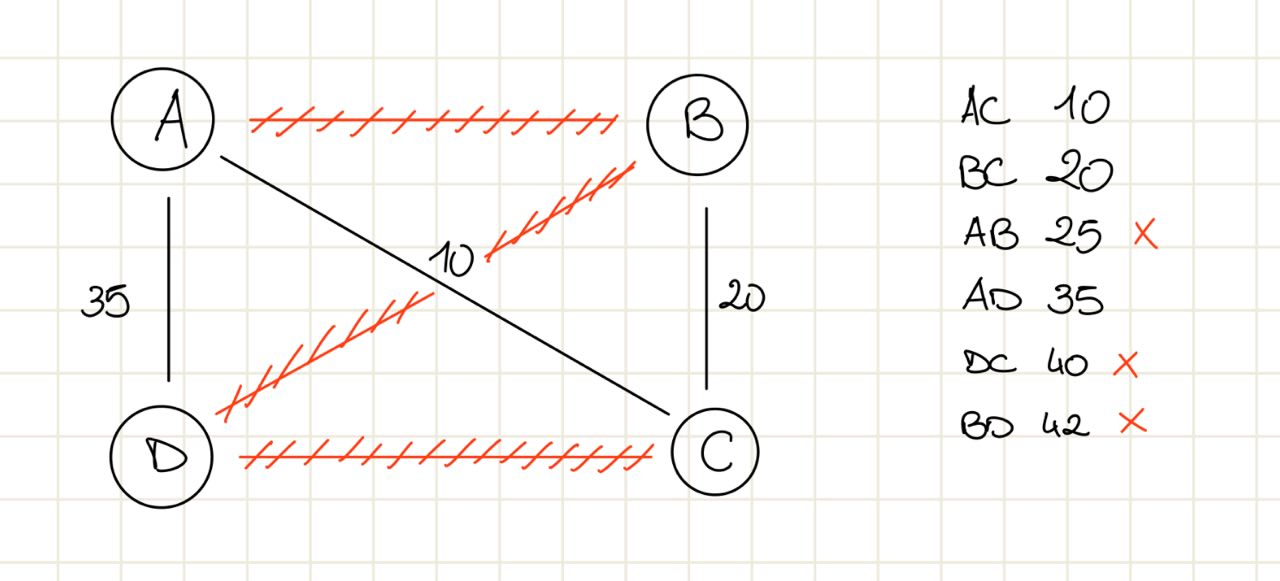 A
B
10
35
20
D
C
AC 10
BC 20
AB 25 ×
AD 35
DC 40 ×
BD 42 ×